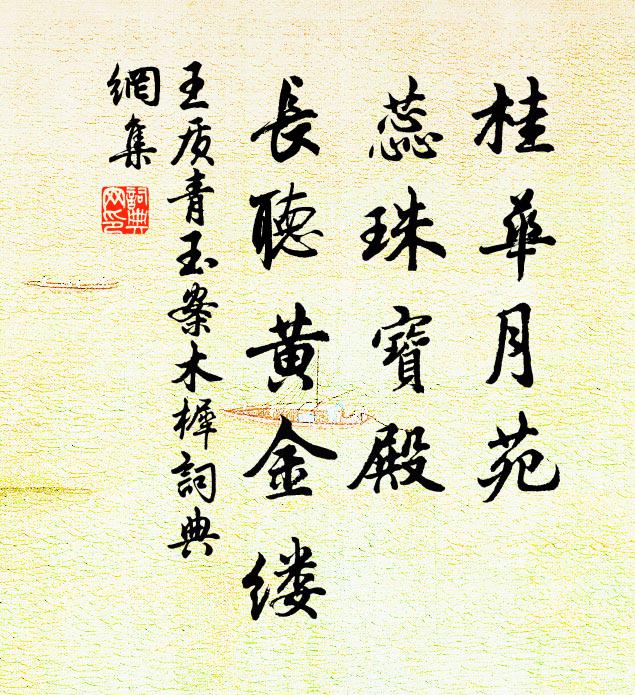 桂華月苑
蕊珠寶殿
長聽黃金缕
王质青玉案木樨詞典
網集
詞典
网印